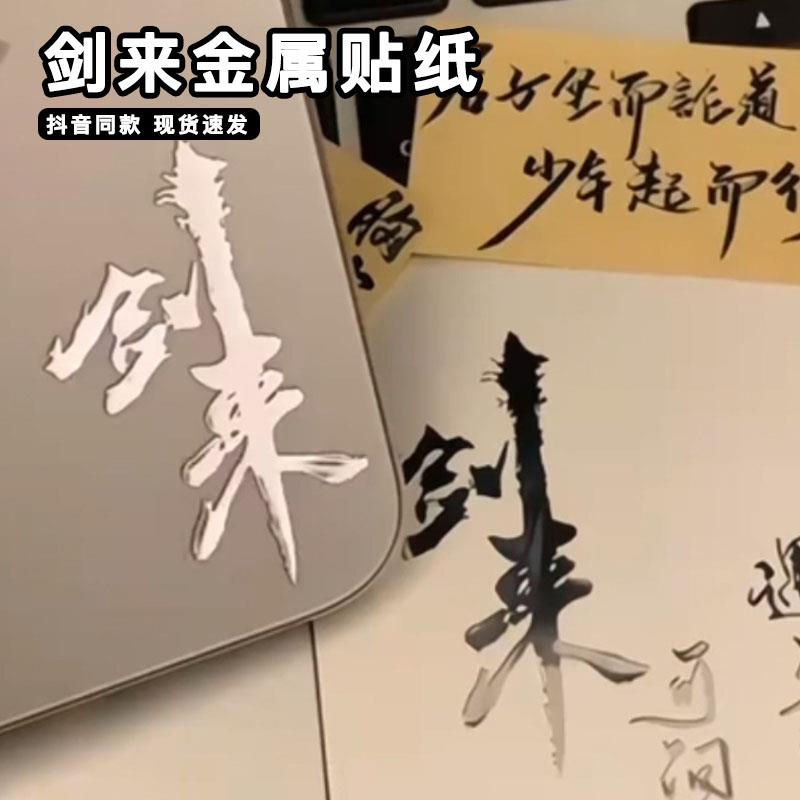 剑来金属贴纸
抖音同款 现货速发
君子坐而論道
少年起而行
剑来
剑来